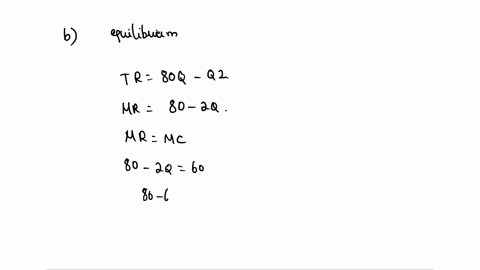 b) equilibrium
TR = 80Q - Q2
MR = 80 - 2Q.
MR = MC
80 - 2Q = 60
80 - (